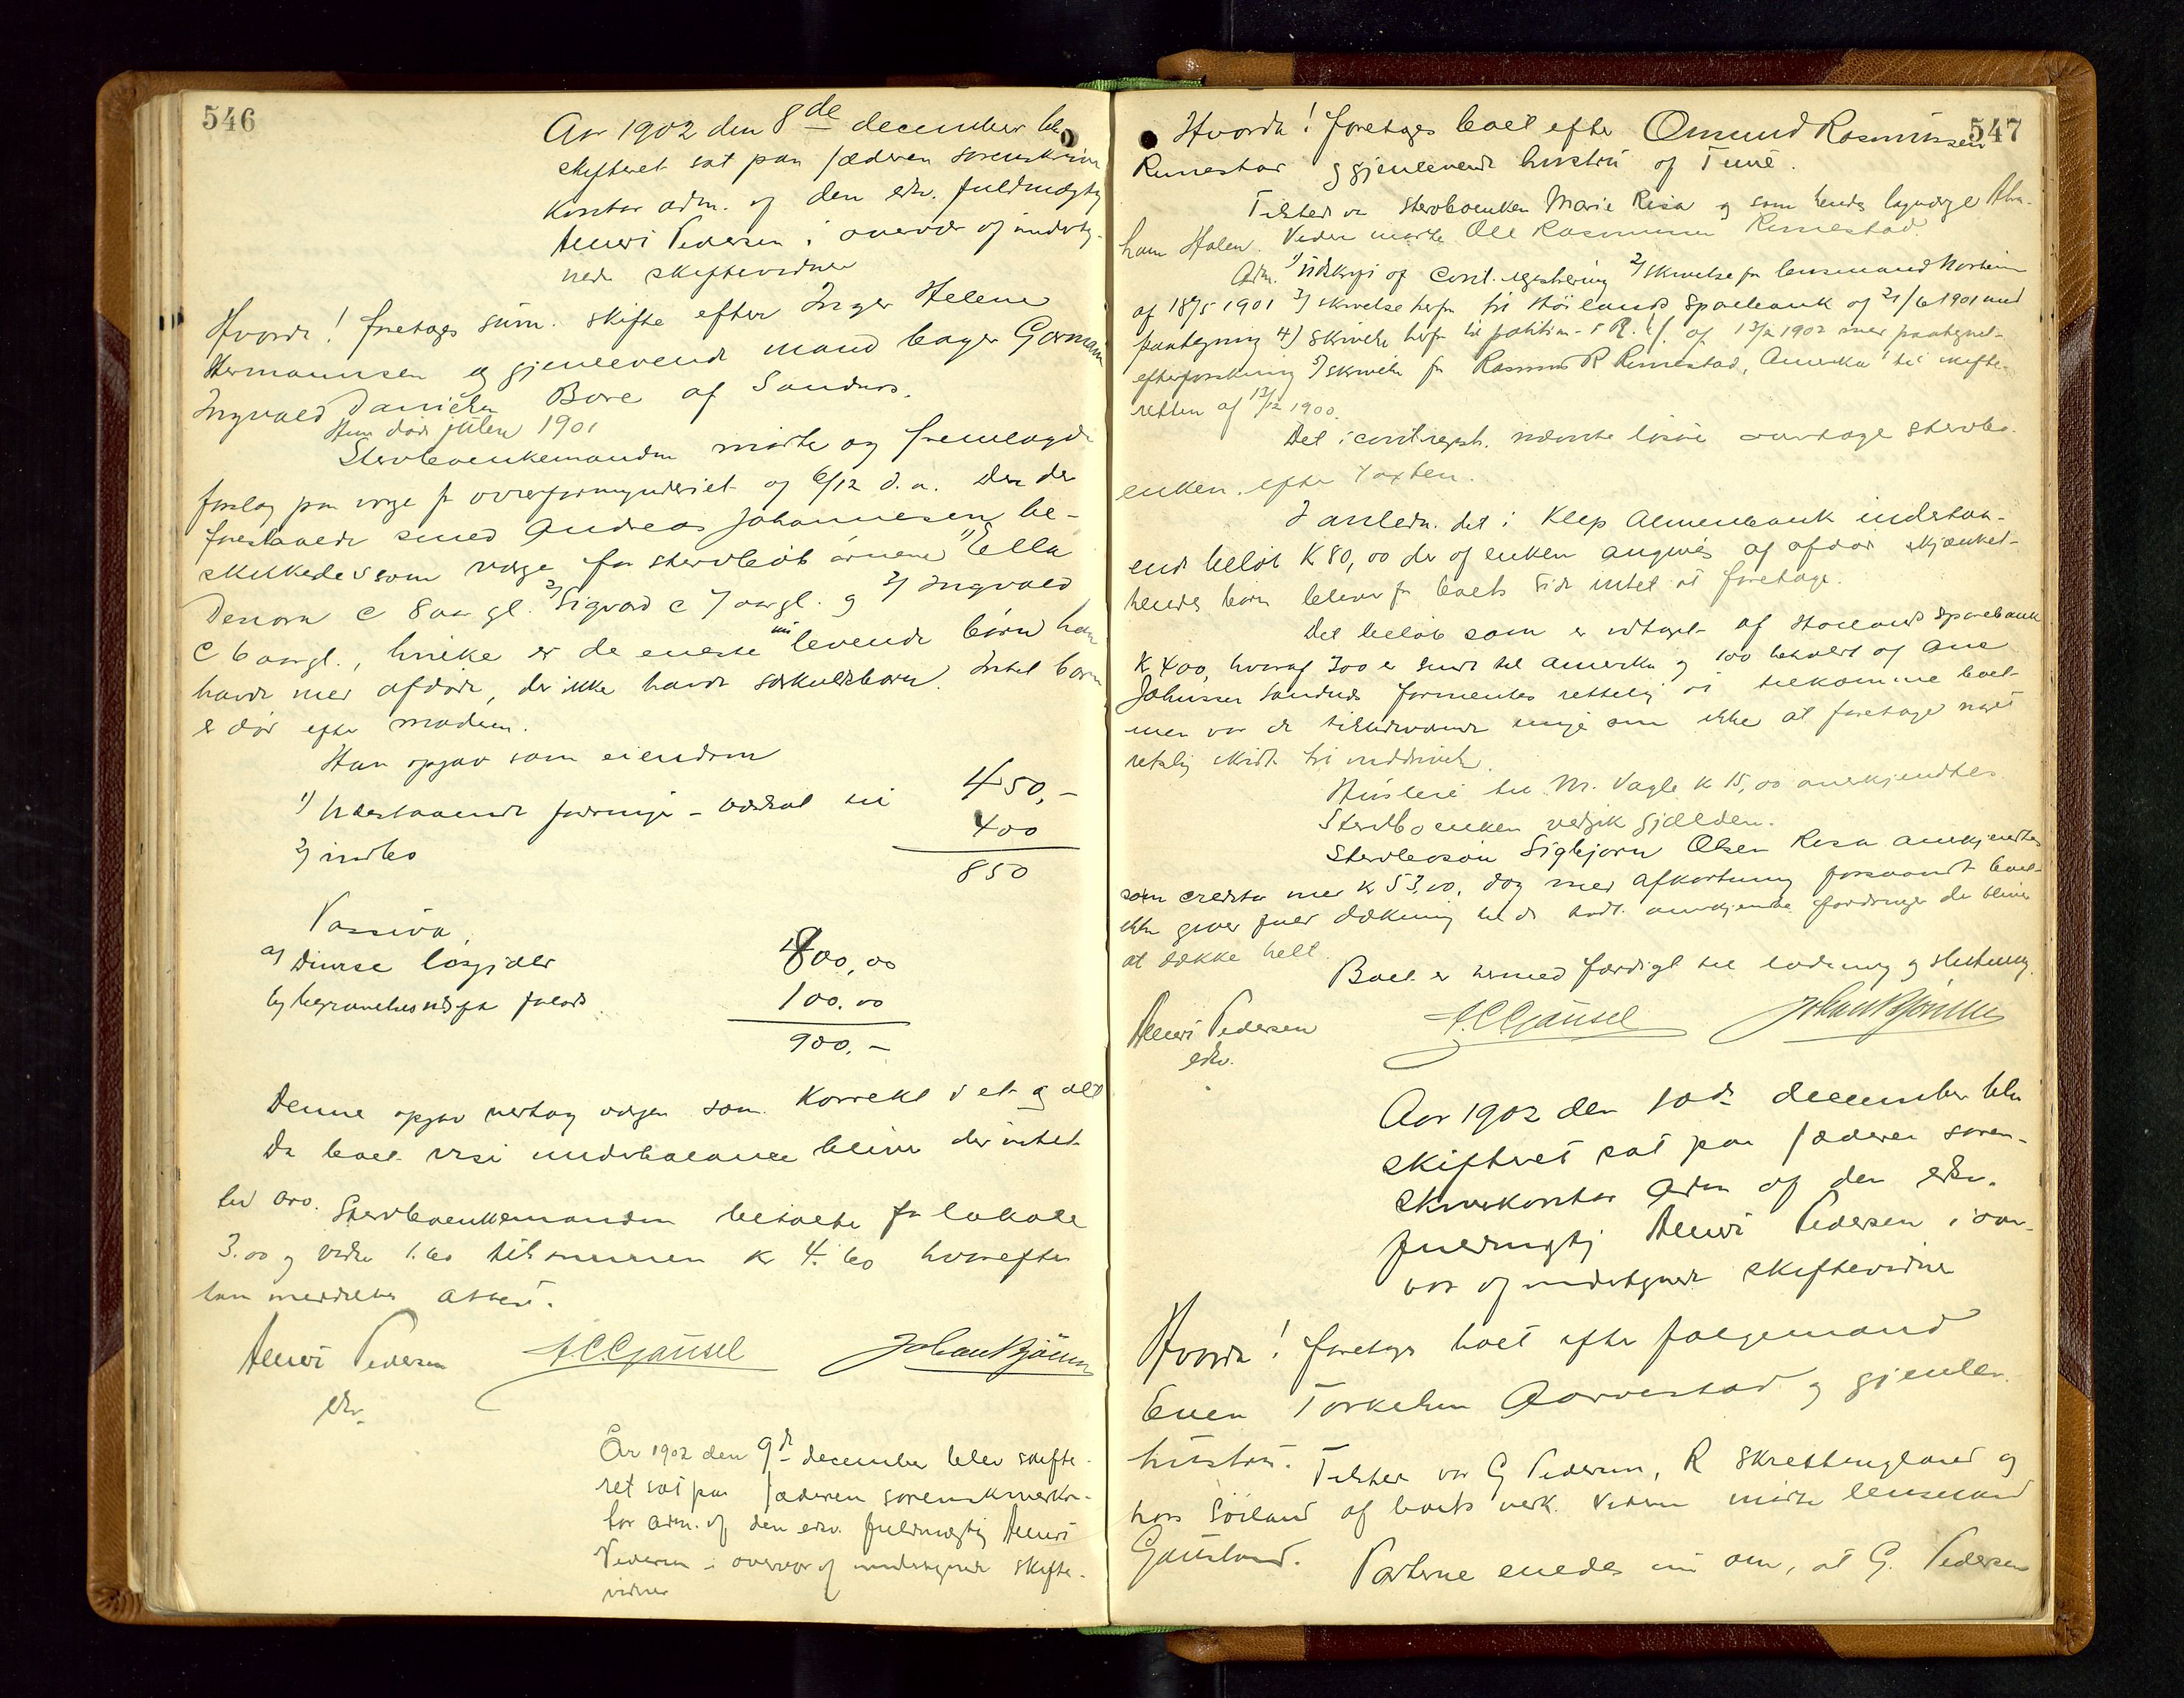 546
Aar 1902 den 8de december blev
skifteret sat paa Jæderen sorenskriver
kontor adm. af den edsv. fuldmægtig
Henri Pedersen i overvær af underteg-
nede skiftevidner
Hvorda! foretages sum. skifte efter Inger Helene
Hermannsen og gjenlevende mand bager Gorman
Ingvald Danielsen Bore af Sandnes.
Hun døde julen 1901
Stervboenkemanden mødte og fremlagde
forslag paa verge fr overformynderiet af 6/12 d.a. Den der
foreslaaede smed Andreas Johannesen be-
skikkedes som verge for stervbobørnene 1) Ella
Denora c 8 aar gl. 2) Sigvard c 7 aar gl. og 3) Ingvald
c 6 aar gl., hvilke er de eneste nu levende børn han
havde med afdøde, der ikke havde særkuldsbarn. Intet barn
er død efter moderen.
Han opgav som eiendom
1) Udestaaende fordringer – værdsat til 450,-
2) indbo 400
850
Passiva,
a) Diverse løsgjæld 800,00
b) begravelsesudgifter 100.00
900.-
Denne opgav vertog vergen som korrekt i et og alt
Da boet viser underbalance bliver der intet
til arv. Stervboenkemanden betalte for lokale
3.00 og vidner 1.60 tilsammen kr 4.60 hvorefter
han meddeltes attest.
Henri Pedersen A C Gjausel Johan Bjørnsen
edsv.
År 1902 den 9de december blev skifte-
ret sat paa Jæderen sorenskriverkon-
tor adm. af den edsv. fuldmægtig Henri
Pedersen i overvær af undertegnede skifte-
vidner
547
Hvorda! foretages boet efter Omund Rasmussen
Rimestad og gjenlevende hustru af Time.
Tilstede var stervboenken Marie Risa og som hendes lagverge Abra-
ham Holen. Videre mødte Ole Rasmussen Rimestad
Adm. 1) Udskrift af cont. registrering 2) skrivelse fra lensmand Norheim
af 18/5 1901 3) skrivelse herfra til Høilands Sparebank af 21/6 1901 med
paategning 4) skrivelse herfra til af 13/2 1902 med paategnet
efterforskning 5) skrivelse fra Rasmus R Rimestad, Amerika til skifte-
retten af 12/12 1900.
Det i cont.regist. nævnte løsøre overtages stervbo-
enken efter Taxten.
I anledn. det i Klep Almenbank indestaa-
ende beløb K 80,00 der af enken angives af afdøde skjænket
hendes børn bliver fr boets side intet at foretage.
Det beløb som er udtaget af Høilands Sparebank
K 400, hvoraf 300 er sendt til Amerika og 100 betalt af Ane
Johnsen Sandnes formentes rettelig at tilkomme boet
men var de tilstedeværende enige om ikke at foretage noget
retslig skridt til inddrivelse.
Husleie til M. Vagle K 15,00 anerkjendtes
Stervboenken vedgik gjælden.
Stervbosøn Sigbjørn Olsen Risa anerkjendtes
som creditor med kr 53,00, dog med afkortning forsaavidt boet
ikke giver fuld dækning til de andre anerkjendte fordringer der bliver
at dække helt.
Boet er hermed færdigt til lodning og slutning
Henri Pedersen A.C Gjausel Johan Bjørnsen
edsv.
Aar 1902 den 10de december blev
skifteret sat paa Jæderen soren-
skriverkontor adm af den edsv.
fuldmægtig Henri Pedersen i over-
vær af undertegnede skiftevidner
Hvorda! foretages boet efter følgemand
Even Torkelsen Aarrestad og gjenlev.
hustru. Tilstede var G Pedersen, R Skrettingland og
hos Søiland af boets verk. Videre mødte lensmand
Gausland. Parterne enedes nu om, at G. Pedersen